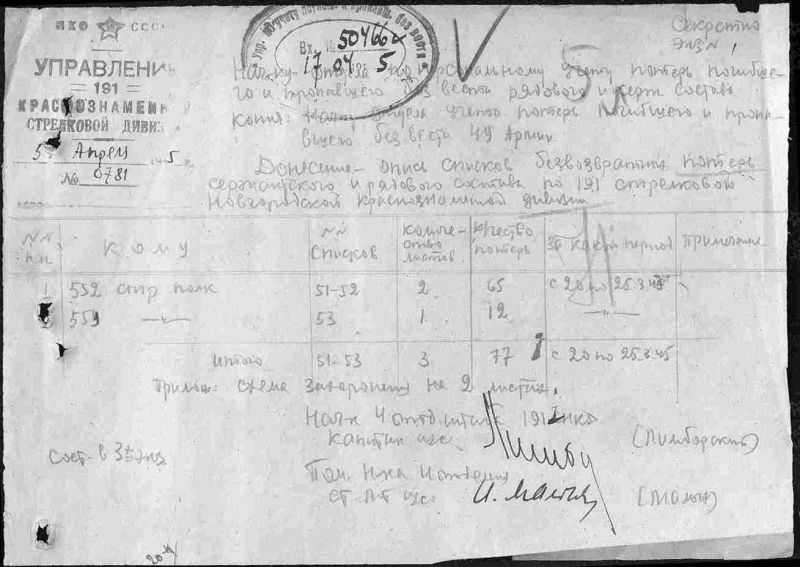 НКО СССР
УПРАВЛЕНИЕ
— 191 —
КРАСНОЗНАМЕН
СТРЕЛКОВОЙ ДИВИЗ
5 Апрель 1945 г.
№ 0781
Вх. № 50466с
17 04 5
Секретно
Экз №
персональному учету потерь погибше-
го и пропавшего без вести рядового и серж состава
Копия: отдела учета потерь погибшего и пропа-
вшего без вести 49 Армии
Донесение – опись списков безвозвратных потерь
сержантского и рядового состава по 191 стрелковой
Новгородской Краснознаменной дивизии
№№ п.п. Кому №№ списков Количе-ство листов К-чество потерь За какой период Примечание
1 552 стр полк 51-52 2 65 с 20 по 25.3.45
2 559 —"— 53 1 12 —"—
Итого 51-53 3 77 с 20 по 25.3.45
Прилож: схема на 2 листах.
Нач 4 отд штаба 191
Капитан
Сост. в 3х экз
Пом. Нка 4 отделения
Ст. Л-т